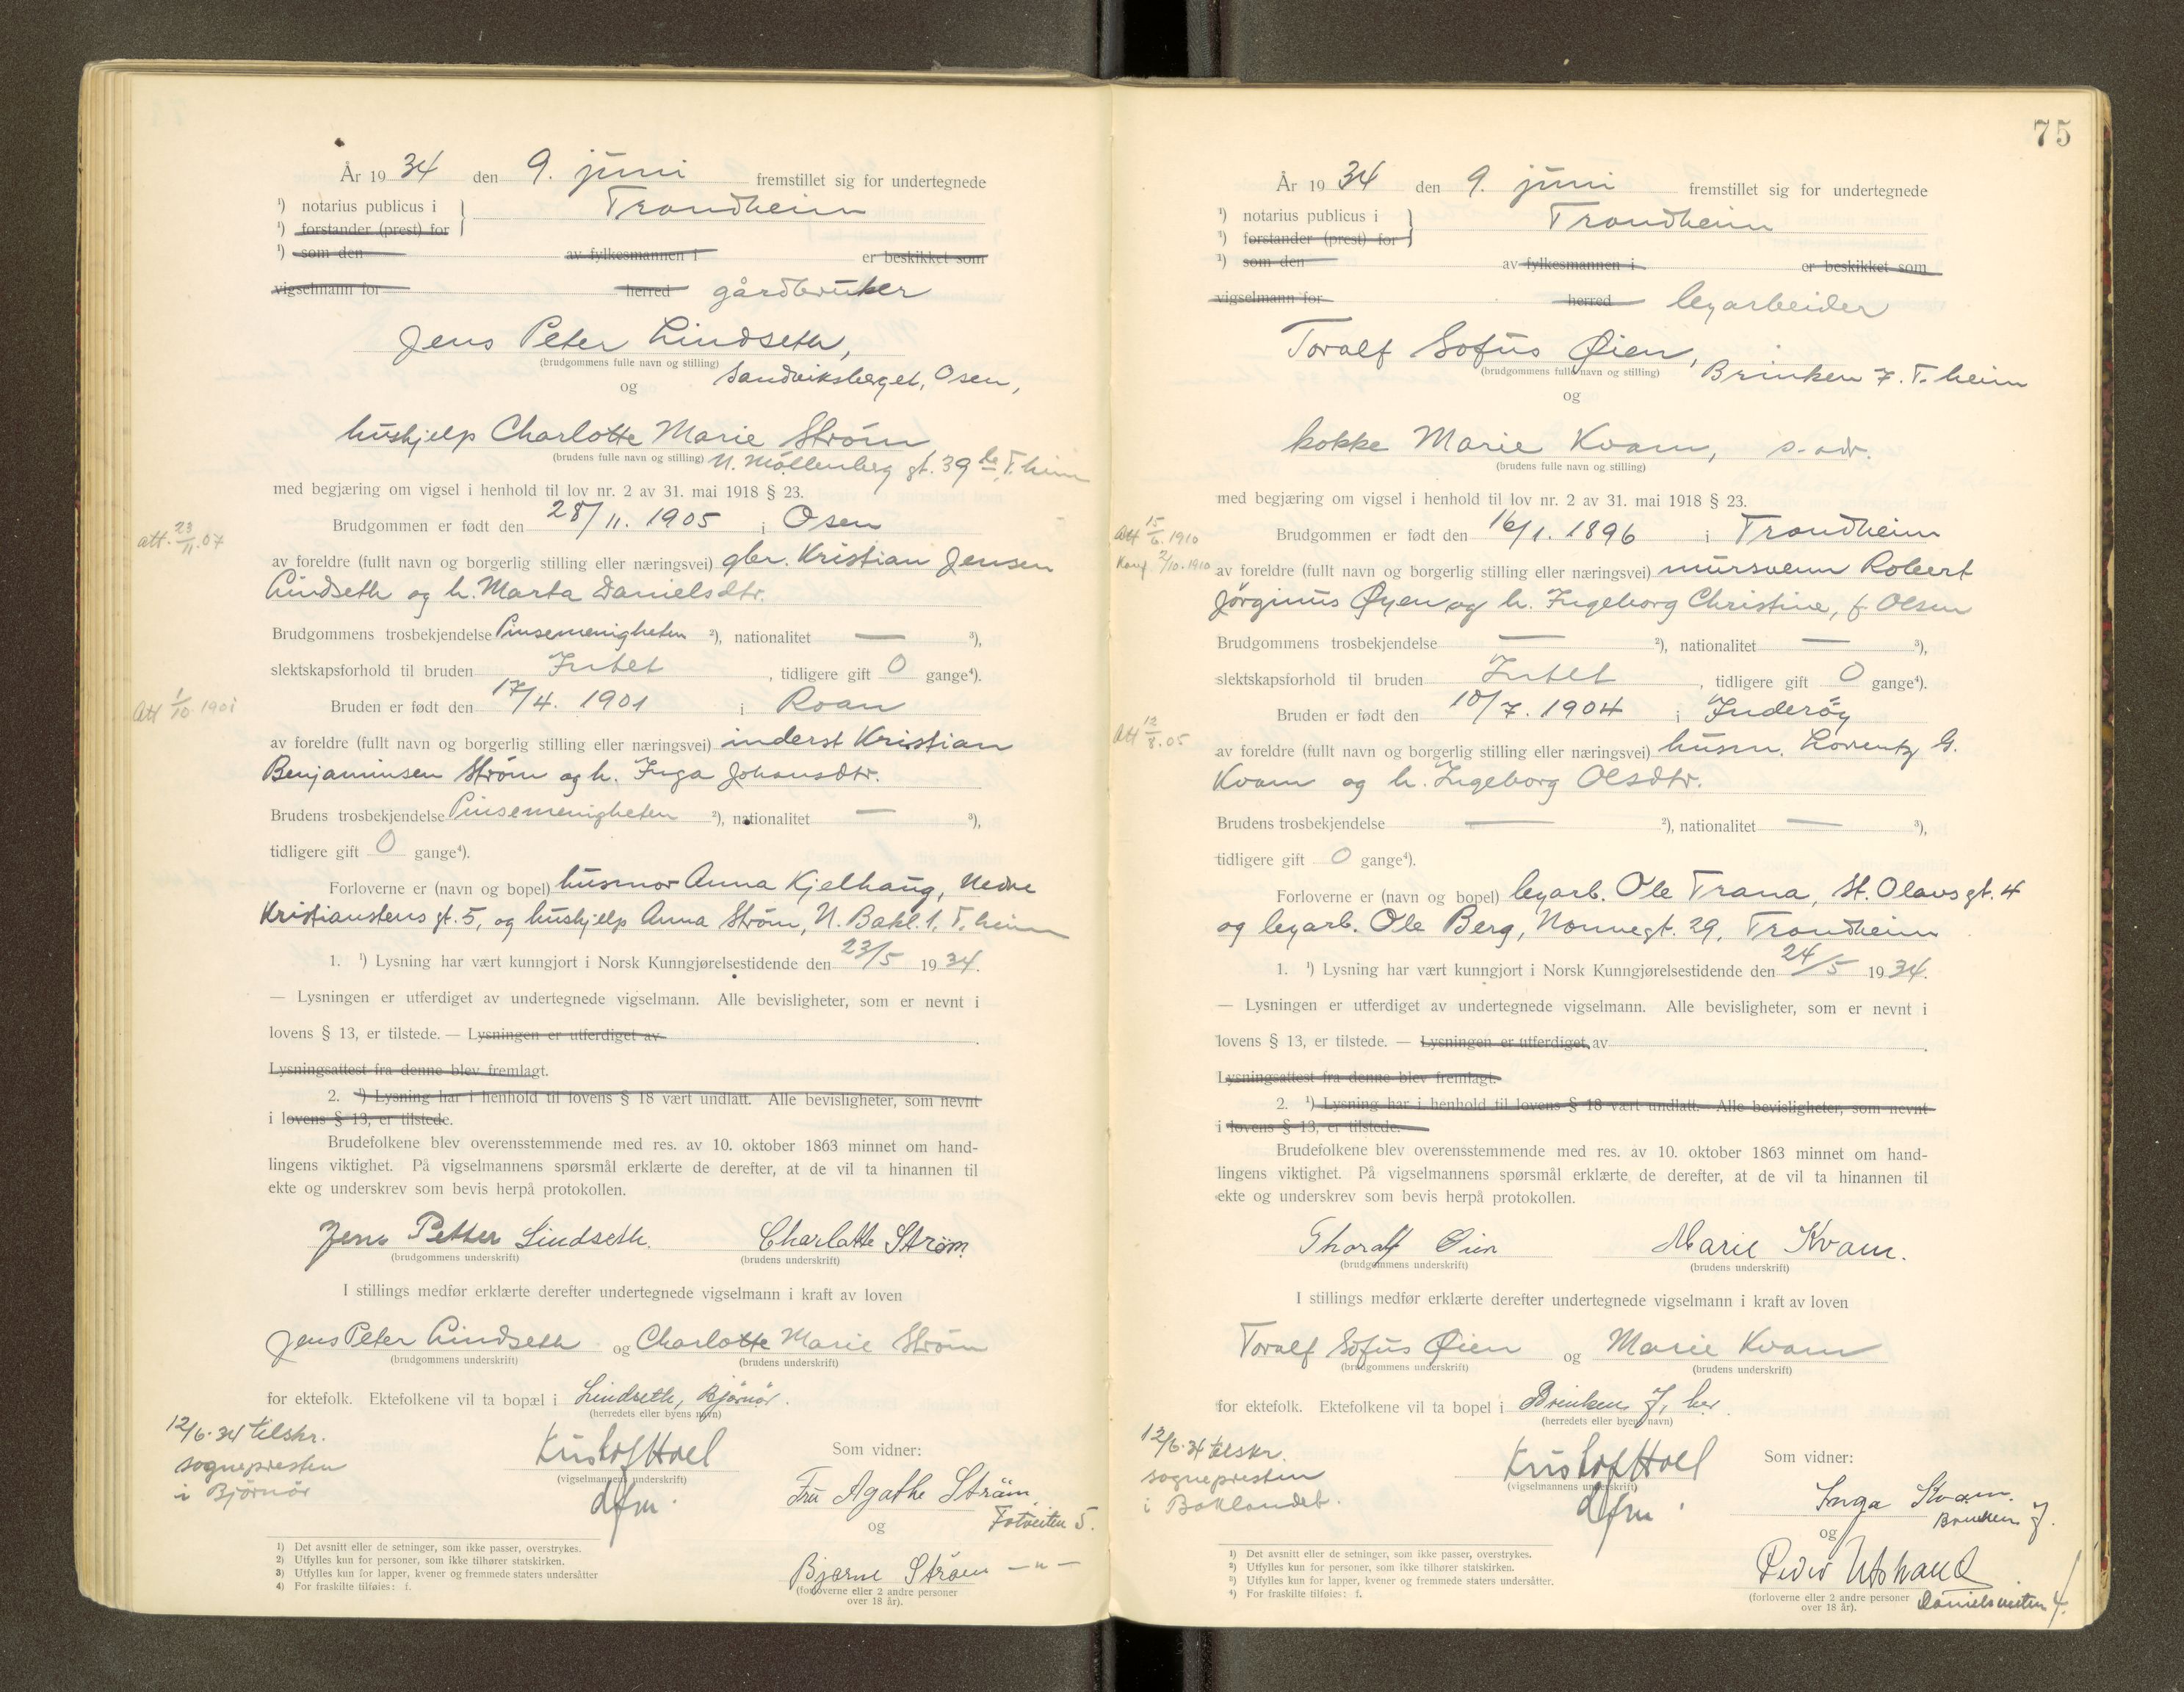 År 1934 den 9. juni fremstillet sig for undertegnede
¹) notarius publicus i Trondheim
¹) forstander (prest) for
¹) som den av fylkesmannen i er beskikket som
vigselmann for herred gårdbruker
Jens Peter Lindseth,
(brudgommens fulle navn og stilling) Sandviksberget, Osen,
og
hushjelp Charlotte Marie Strøm
(brudens fulle navn og stilling) N. Møllenberg gt. 39 T.heim
med begjæring om vigsel i henhold til lov nr. 2 av 31. mai 1918 § 23.
Brudgommen er født den 28/11. 1905 i Osen
att. 23/11.07
av foreldre (fullt navn og borgerlig stilling eller næringsvei) gbr. Kristian Jensen
Lindseth og h. Marta Danielsdtr.
Brudgommens trosbekjendelse Pinsemenigheten ²), nationalitet — ³),
slektskapsforhold til bruden Intet , tidligere gift 0 gange⁴).
Bruden er født den 17/4. 1901 i Roan
Att 1/10. 1901
av foreldre (fullt navn og borgerlig stilling eller næringsvei) inderst Kristian
Benjaminsen Strøm og h. Inga Johansdtr.
Brudens trosbekjendelse Pinsemenigheten ²), nationalitet — ³),
tidligere gift 0 gange⁴).
Forloverne er (navn og bopel) husmor Anna Kjelhaug, Nedre
Kristianstens gt. 5, og hushjelp Anna Strøm, N. Bakl. 1, T.heim
1. ¹) Lysning har vært kunngjort i Norsk Kunngjørelsestidende den 23/5 1934.
— Lysningen er utferdiget av undertegnede vigselmann. Alle bevisligheter, som er nevnt i
lovens § 13, er tilstede. — Lysningen er utferdiget av
Lysningsattest fra denne blev fremlagt.
2. ¹) Lysning har i henhold til lovens § 18 vært undlatt. Alle bevisligheter, som nevnt
i lovens § 13, er tilstede.
Brudefolkene blev overensstemmende med res. av 10. oktober 1863 minnet om hand-
lingens viktighet. På vigselmannens spørsmål erklærte de derefter, at de vil ta hinannen til
ekte og underskrev som bevis herpå protokollen.
Jens Petter Lindseth. Charlotte Strøm.
(brudgommens underskrift) (brudens underskrift)
I stillings medfør erklærte derefter undertegnede vigselmann i kraft av loven
Jens Peter Lindseth og Charlotte Marie Strøm
(brudgommens underskrift) (brudens underskrift)
for ektefolk. Ektefolkene vil ta bopæl i Lindseth, Bjørnør.
(herredets eller byens navn)
12/6.34 tilskr.
sognepresten
i Bjørnør
Kristof Hoel Som vidner:
(vigselmannens underskrift)
dfm.
Fru Agathe Strøm
Fotveiten 5.
og
Bjarne Strøm — " —
(forloverne eller 2 andre personer
over 18 år).
1) Det avsnitt eller de setninger, som ikke passer, overstrykes.
2) Utfylles kun for personer, som ikke tilhører statskirken.
3) Utfylles kun for lapper, kvener og fremmede staters undersåtter
4) For fraskilte tilføies: f.
75
År 1934 den 9. juni fremstillet sig for undertegnede
¹) notarius publicus i Trondheim
¹) forstander (prest) for
¹) som den av fylkesmannen i er beskikket som
vigselmann for herred byarbeider
Toralf Sofus Øien,
(brudgommens fulle navn og stilling) Brinken 7. T.heim
og
kokke Marie Kvam, s. adr.
(brudens fulle navn og stilling)
med begjæring om vigsel i henhold til lov nr. 2 av 31. mai 1918 § 23.
Brudgommen er født den 16/1. 1896 i Trondheim
Att 15/6. 1910
Konf 2/10. 1910
av foreldre (fullt navn og borgerlig stilling eller næringsvei) mursvenn Robert
Jørginus Øyen og h. Ingeborg Christine, f. Olsen
Brudgommens trosbekjendelse — ²), nationalitet — ³),
slektskapsforhold til bruden Intet , tidligere gift 0 gange⁴).
Bruden er født den 10/7. 1904 i Inderøy
Att 12/8.05
av foreldre (fullt navn og borgerlig stilling eller næringsvei) husm. Lorentz G.
Kvam og h. Ingeborg Olsdtr.
Brudens trosbekjendelse — ²), nationalitet — ³),
tidligere gift 0 gange⁴).
Forloverne er (navn og bopel) byarb. Ole Trana, St. Olavs gt. 4
og byarb. Ole Berg, Nonnegt. 29, Trondheim
1. ¹) Lysning har vært kunngjort i Norsk Kunngjørelsestidende den 24/5 1934.
— Lysningen er utferdiget av undertegnede vigselmann. Alle bevisligheter, som er nevnt i
lovens § 13, er tilstede. — Lysningen er utferdiget av
Lysningsattest fra denne blev fremlagt.
2. ¹) Lysning har i henhold til lovens § 18 vært undlatt. Alle bevisligheter, som nevnt
i lovens § 13, er tilstede.
Brudefolkene blev overensstemmende med res. av 10. oktober 1863 minnet om hand-
lingens viktighet. På vigselmannens spørsmål erklærte de derefter, at de vil ta hinannen til
ekte og underskrev som bevis herpå protokollen.
Thoralf Øien Marie Kvam.
(brudgommens underskrift) (brudens underskrift)
I stillings medfør erklærte derefter undertegnede vigselmann i kraft av loven
Toralf Sofus Øien og Marie Kvam
(brudgommens underskrift) (brudens underskrift)
for ektefolk. Ektefolkene vil ta bopel i Brinken 7, her
(herredets eller byens navn)
12/6.34 tilskr.
sognepresten
i Baklandet.
Kristof Hoel Som vidner:
(vigselmannens underskrift)
dfm.
Inga Kvam.
Brinken 7.
og
Peder
Danielsveiten 4.
(forloverne eller 2 andre personer
over 18 år).
¹) Det avsnitt eller de setninger, som ikke passer, overstrykes.
²) Utfylles kun for personer, som ikke tilhører statskirken.
³) Utfylles kun for lapper, kvener og fremmede staters undersåtter.
⁴) For fraskilte tilføies: f.